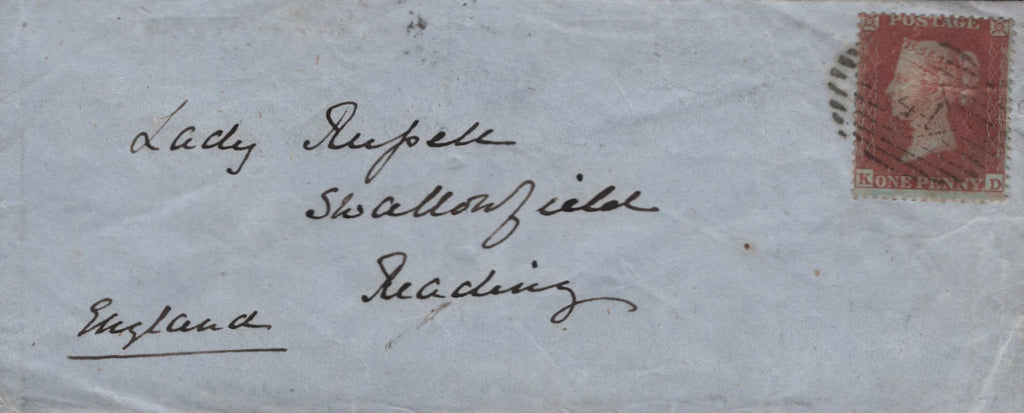 POSTAGE
K ONE PENNY D
Lady Rufsell
Swallowfield
Reading
England